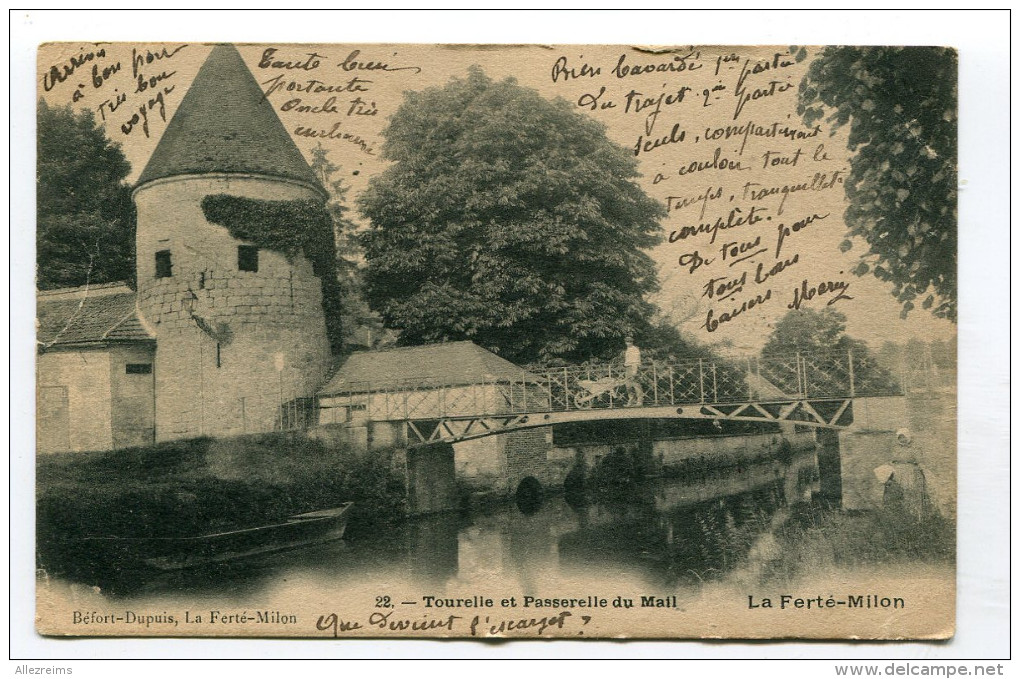 Arrivés
à bon port
très bon
voyage)
Tante bien
portante
Oncle très
Bien bavardé 1ère partie
Du trajet. 2me partie
seuls, compartiment
à couloir tout le
temps, tranquillité
complète.
De tous, pour
tous bons
baisers Marie
22. — Tourelle et Passerelle du Mail
La Ferté-Milon
Béfort-Dupuis, La Ferté-Milon
Que devient l'escargot ?
Allezreims
www.delcampe.net